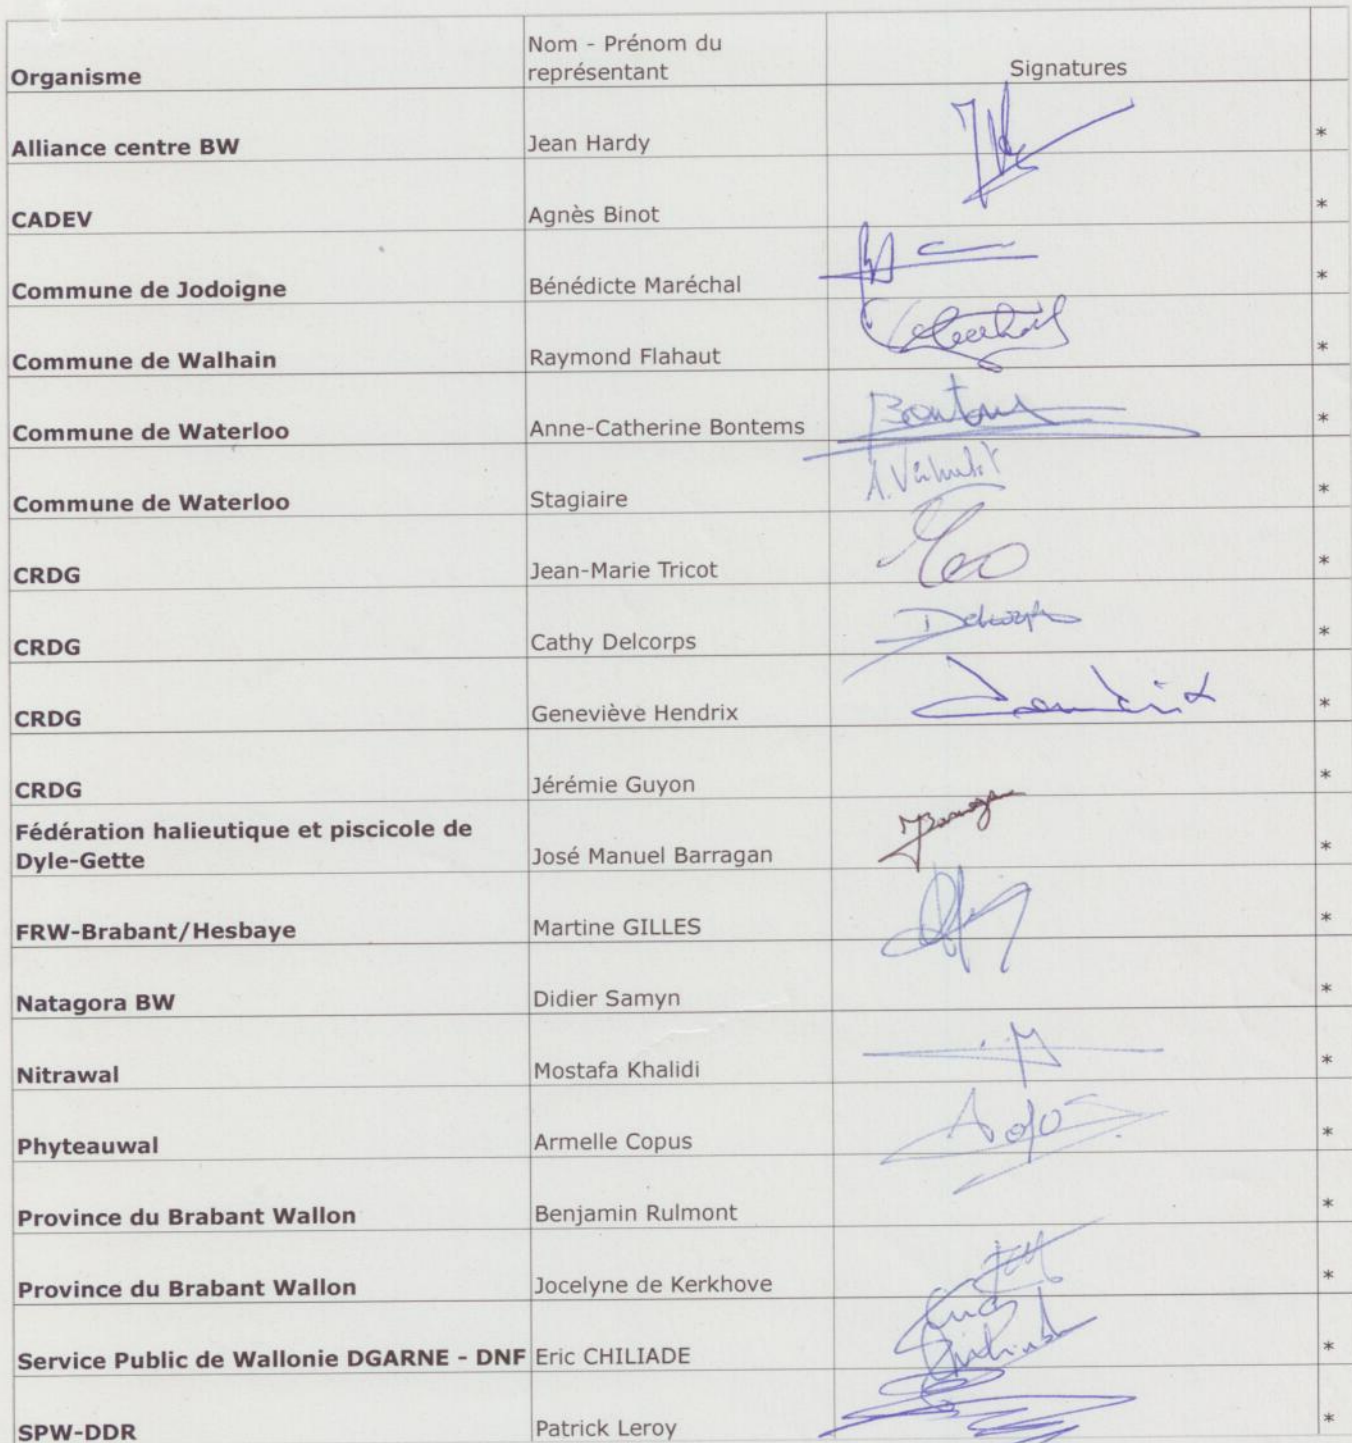 Nom - Prénom du
Organisme représentant Signatures
Alliance centre BW Jean Hardy *
CADEV Agnès Binot *
Commune de Jodoigne Bénédicte Maréchal *
Commune de Walhain Raymond Flahaut *
Commune de Waterloo Anne-Catherine Bontems Bontems *
Commune de Waterloo Stagiaire *
CRDG Jean-Marie Tricot *
CRDG Cathy Delcorps Delcorps *
CRDG Geneviève Hendrix *
CRDG Jérémie Guyon *
Fédération halieutique et piscicole de
Dyle-Gette José Manuel Barragan *
FRW-Brabant/Hesbaye Martine GILLES *
Natagora BW Didier Samyn *
Nitrawal Mostafa Khalidi *
Phyteauwal Armelle Copus *
Province du Brabant Wallon Benjamin Rulmont *
Province du Brabant Wallon Jocelyne de Kerkhove *
Service Public de Wallonie DGARNE - DNF Eric CHILIADE *
SPW-DDR Patrick Leroy *